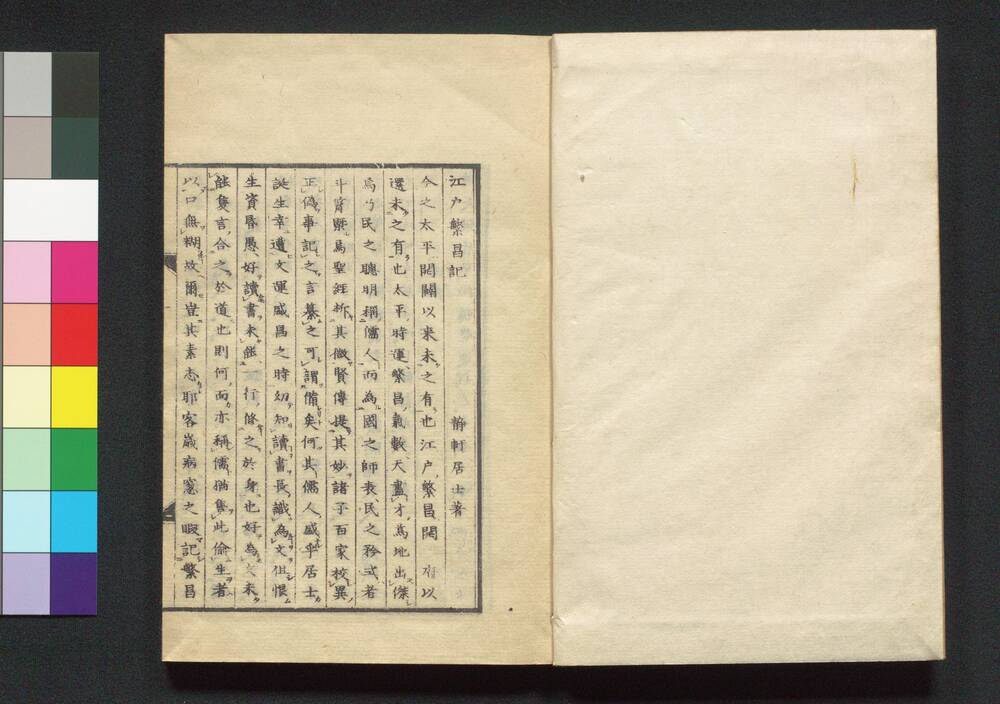 江戸繁昌記 静軒居士著
今之太平開闢以来未之有也江戸繁昌開府以
還未之有也太平時運繁昌氣數天盡才為地出傑
焉乃民之聰明稱儒人而為國之師表民之矜式者
斗筲緊焉聖經折其微賢傳提其妙諸子百家校異
正偽事記之言纂之可謂備矣何其儒人盛乎居士
誕生幸遭文運盛昌之時幼知讀書長識為文但恨
生資昏愚好讀書未能行修之於身也好為文未
能隻言合之於道也則何而亦稱儒猶集此偷生者
以口無糊故爾豈其素志耶客歲病窓之暇記繁昌